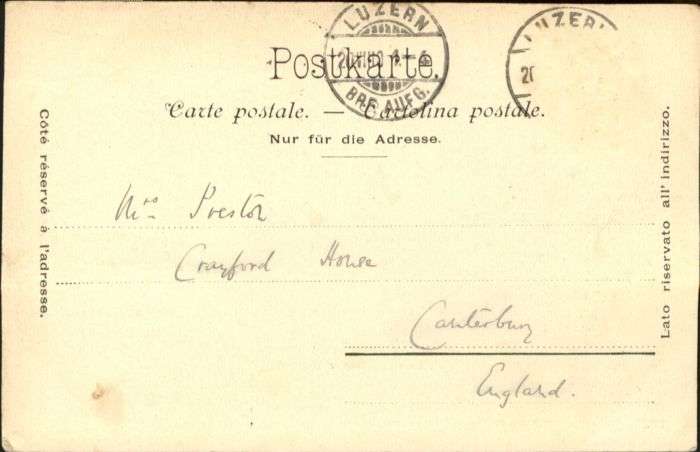 LUZERN
BRF. AUFG.
LUZERN
20
Postkarte.
Carte postale. — Cartolina postale.
Nur für die Adresse.
Côté réservé à l'adresse.
Lato riservato all' indirizzo.
Mrs Preston
Crayford House
Canterbury
England.